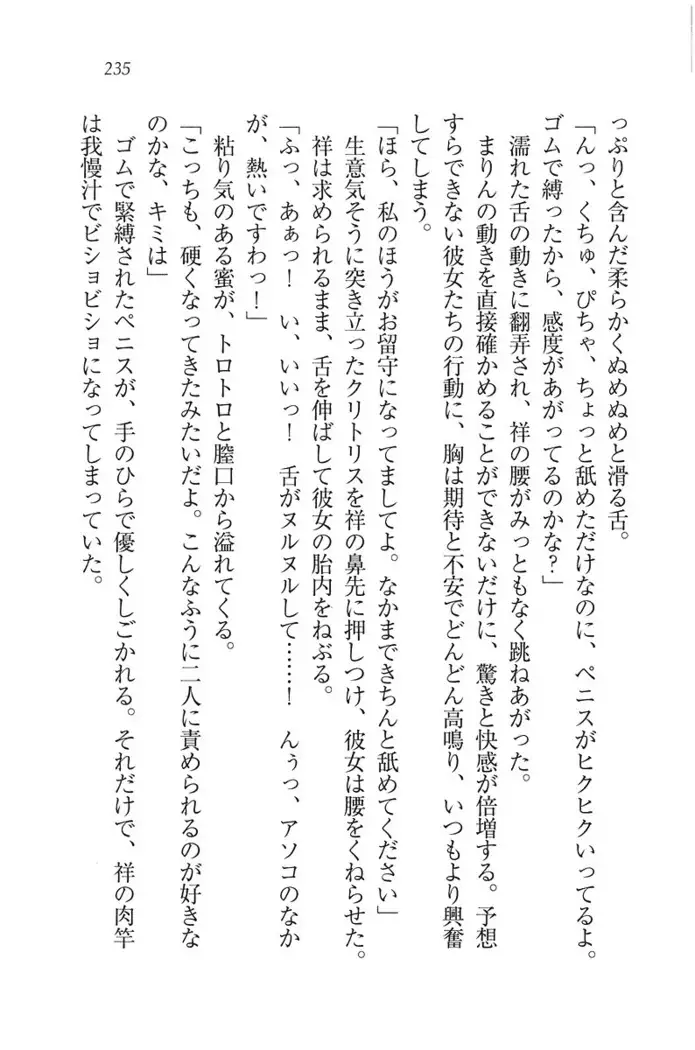 235
っぷりと含んだ柔らかくぬめぬめと滑る舌。
「んっ、くちゅ、ぴちゃ、ちょっと舐めただけなのに、ペニスがヒクヒクいってるよ。
ゴムで縛ったから、感度があがってるのかな？」
濡れた舌の動きに翻弄され、祥の腰がみっともなく跳ねあがった。
まりんの動きを直接確かめることができないだけに、驚きと快感が倍増する。予想
すらできない彼女たちの行動に、胸は期待と不安でどんどん高鳴り、いつもより興奮
してしまう。
「ほら、私のほうがお留守になってましてよ。なかまできちんと舐めてください」
生意気そうに突き立ったクリトリスを祥の鼻先に押しつけ、彼女は腰をくねらせた。
祥は求められるまま、舌を伸ばして彼女の胎内をねぶる。
「ふっ、あぁっ！　い、いいっ！　舌がヌルヌルして……！　んぅっ、アソコのなか
が、熱いですわっ！」
粘り気のある蜜が、トロトロと膣口から溢れてくる。
「こっちも、硬くなってきたみたいだよ。こんなふうに二人に責められるのが好きな
のかな、キミは」
ゴムで緊縛されたペニスが、手のひらで優しくしごかれる。それだけで、祥の肉竿
は我慢汁でビショビショになってしまっていた。